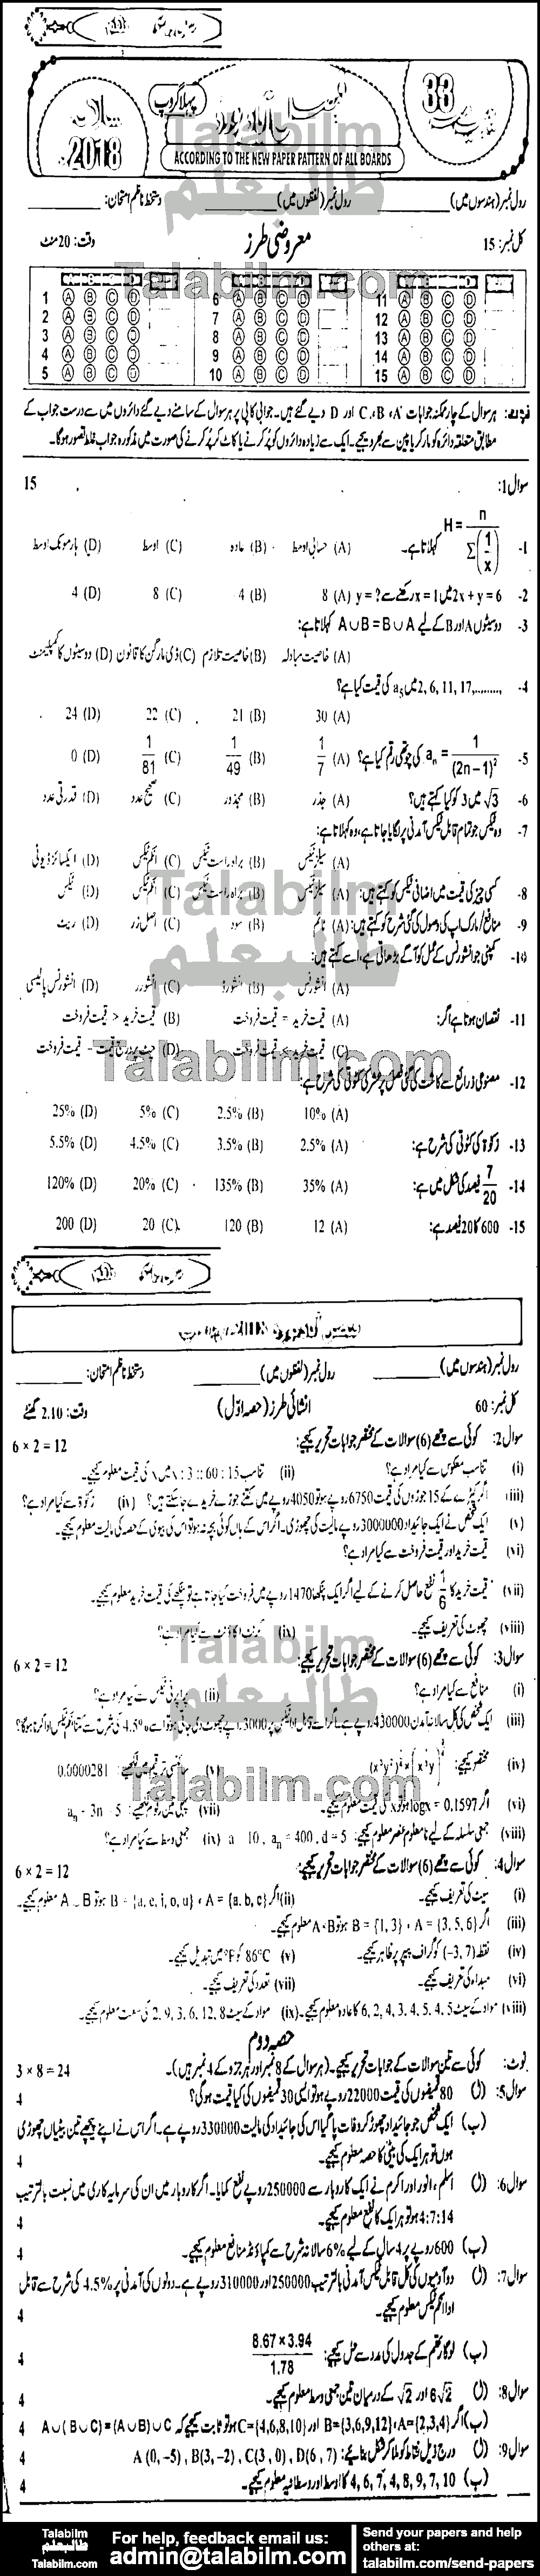 پہلا گروپ
33
سالانہ
2018ء
ACCORDING TO THE NEW PAPER PATTERN OF ALL BOARDS
رول نمبر (ہندسوں میں) ________ رول نمبر (لفظوں میں) ________ دستخط ناظم امتحان: ________
کل نمبر: 15 معروضی طرز وقت: 20 منٹ
1 A B C D 6 A B C D 11 A B C D
2 A B C D 7 A B C D 12 A B C D
3 A B C D 8 A B C D 13 A B C D
4 A B C D 9 A B C D 14 A B C D
5 A B C D 10 A B C D 15 A B C D
نوٹ: ہر سوال کے چار ممکنہ جوابات A، B، C اور D دیے گئے ہیں۔ جوابی کاپی پر ہر سوال کے سامنے دیے گئے دائروں میں سے درست جواب کے
مطابق متعلقہ دائرہ کو مارکر یا پین سے بھر دیجیے۔ ایک سے زیادہ دائروں کو پُر کرنے یا کاٹ کر پُر کرنے کی صورت میں مذکورہ جواب غلط تصور ہوگا۔
سوال 1: 15
1- H = n / Σ(1/x) کہلاتا ہے۔ (A) حسابی اوسط (B) عادہ (C) اوسط (D) ہارمونک اوسط
2- 2x + y = 6 میں x = 1 رکھنے سے y = ? (A) 8 (B) 4 (C) 8 (D) 4
3- دو سیٹوں A اور B کے لیے A∪B = B∪A کہلاتا ہے:
(A) خاصیت مبادلہ (B) خاصیت تلازم (C) ڈی مارگن کا قانون (D) دو سیٹوں کا کمپلیمنٹ
4- 2, 6, 11, 17,......... میں a5 کی قیمت کیا ہے؟
(A) 30 (B) 21 (C) 22 (D) 24
5- an = 1/(2n−1)² کی چوتھی رقم کیا ہے؟ (A) 1/7 (B) 1/49 (C) 1/81 (D) 0
6- √3 میں 3 کو کیا کہتے ہیں؟ (A) جذر (B) مجذور (C) صحیح عدد (D) قدرتی عدد
7- وہ ٹیکس جو تمام قابل ٹیکس آمدنی پر لگایا جاتا ہے، وہ کہلاتا ہے:
(A) سیلز ٹیکس (B) براہ راست ٹیکس (C) انکم ٹیکس (D) ایکسائز ڈیوٹی
8- کسی چیز کی قیمت میں اضافی ٹیکس کو کہتے ہیں: (A) سیلز ٹیکس (B) براہ راست ٹیکس (C) انکم ٹیکس (D) ٹیکس
9- منافع/مارک اپ کی وصول کی گئی شرح کو کہتے ہیں: (A) ٹائم (B) سود (C) اصل زر (D) ریٹ
10- کمپنی جو انشورنس کے عمل کو آگے بڑھاتی ہے، اسے کہتے ہیں:
(A) انشورنس (B) انشورڈ (C) انشورر (D) انشورنس پالیسی
11- نقصان ہوتا ہے اگر: (A) قیمت خرید = قیمت فروخت (B) قیمت خرید > قیمت فروخت
(C) قیمت خرید < قیمت فروخت (D) قیمت فروخت
12- مصنوعی ذرائع سے کاشت کی گئی فصل پر عشر کی کٹوتی کی شرح ہے:
(A) 10% (B) 2.5% (C) 5% (D) 25%
13- زکوٰۃ کی کٹوتی کی شرح ہے: (A) 2.5% (B) 3.5% (C) 4.5% (D) 5.5%
14- 7/20 فیصد کی شکل میں ہے: (A) 35% (B) 135% (C) 20% (D) 120%
15- 600 کا 20 فیصد ہے: (A) 12 (B) 120 (C) 20 (D) 200
رول نمبر (ہندسوں میں) ________ رول نمبر (لفظوں میں) ________ دستخط ناظم امتحان: ________
کل نمبر: 60 انشائی طرز (حصہ اول) وقت: 2.10 گھنٹے
سوال 2: کوئی سے چھے (6) سوالات کے مختصر جوابات تحریر کیجیے: 6 × 2 = 12
(i) تناسب معکوس سے کیا مراد ہے؟ (ii) تناسب x : 3 :: 60 : 15 میں x کی قیمت معلوم کیجیے۔
(iii) اگر کپڑے کے 15 جوڑوں کی قیمت 6750 روپے ہو تو 4050 روپے میں کتنے جوڑے خریدے جا سکتے ہیں؟ (iv) زکوٰۃ سے کیا مراد ہے؟
(v) ایک شخص نے ایک جائیداد 3000000 روپے مالیت کی چھوڑی۔ اگر اس کے ہاں کوئی بچہ نہ ہو تو اس کی بیوی کے حصہ کی مالیت معلوم کیجیے۔
(vi) قیمت خرید اور قیمت فروخت سے کیا مراد ہے؟
(vii) قیمت خرید کا 1/6 نفع حاصل کرنے کے لیے اگر ایک پنکھا 1470 روپے میں فروخت کیا جاتا ہے تو پنکھے کی قیمت خرید معلوم کیجیے۔
(viii) چھوٹ کی تعریف کیجیے۔ (ix) کرنٹ اکاؤنٹ سے کیا مراد ہے؟
سوال 3: کوئی سے چھے (6) سوالات کے مختصر جوابات تحریر کیجیے: 6 × 2 = 12
(i) منافع سے کیا مراد ہے؟ (ii) پراپرٹی ٹیکس سے کیا مراد ہے؟
(iii) ایک شخص کی کل سالانہ آمدن 430000 روپے ہے۔ اگر اسے قابل ادا ٹیکس پر 3000 روپے چھوٹ دی جاتی ہو تو اسے 4.5% کی شرح سے کتنا انکم ٹیکس ادا کرنا ہوگا؟
(iv) مختصر کیجیے: (v) سائنسی ترقیم میں لکھیے: 0.0000281
(vi) اگر logx = 0.1597 ہو تو x کی قیمت معلوم کیجیے۔ (vii) پہلی تین رقوم لکھیے: an = 3n − 5
(viii) جمعی سلسلہ کے لیے نامعلوم عنصر معلوم کیجیے: a = 10, an = 400, d = 5 (ix) جمعی وسط سے کیا مراد ہے؟
سوال 4: کوئی سے چھے (6) سوالات کے مختصر جوابات تحریر کیجیے: 6 × 2 = 12
(i) سیٹ کی تعریف کیجیے۔ (ii) اگر A = {a, b, c}، B = {a, e, i, o, u} ہو تو معلوم کیجیے۔
(iii) اگر A = {3, 5, 6}، B = {1, 3} ہو تو معلوم کیجیے۔
(iv) نقطہ (−3, 7) کو گراف پیپر پر ظاہر کیجیے۔ (v) 86°C کو °F میں تبدیل کیجیے۔
(vi) مبداء کی تعریف کیجیے۔ (vii) تعدد کی تعریف کیجیے۔
(viii) مواد کے سیٹ 6, 2, 4, 3, 4, 5, 4, 5 کا عادہ معلوم کیجیے۔ (ix) مواد کے سیٹ 2, 9, 3, 6, 12, 8 کی سعت معلوم کیجیے۔
حصہ دوم
نوٹ: کوئی سے تین سوالات کے جوابات تحریر کیجیے۔ (ہر سوال کے 8 نمبر اور ہر جزو کے 4 نمبر ہیں)۔ 3 × 8 = 24
سوال 5: (ا) 80 قمیضوں کی قیمت 22000 روپے ہو تو ایسی 30 قمیضوں کی کیا قیمت ہوگی؟ 4
(ب) ایک شخص جو جائیداد چھوڑ کر وفات پا گیا اس کی جائیداد کی مالیت 330000 روپے ہے۔ اگر اس نے اپنے پیچھے تین بیٹیاں چھوڑی
ہوں تو ہر ایک کی بیٹی کا حصہ معلوم کیجیے۔ 4
سوال 6: (ا) اسلم، انور اور اکرم نے ایک کاروبار سے 250000 روپے نفع کمایا۔ اگر کاروبار میں ان کی سرمایہ کاری میں نسبت بالترتیب
4:7:14 ہو تو ہر ایک کا نفع معلوم کیجیے۔ 4
(ب) 600 روپے پر 4 سال کے لیے 6% سالانہ شرح سے کمپاؤنڈ منافع معلوم کیجیے۔ 4
سوال 7: (ا) دو آدمیوں کی کل قابل ٹیکس آمدنی بالترتیب 250000 اور 310000 روپے ہے۔ دونوں کی آمدنی پر 4.5% کی شرح سے قابل
ادا انکم ٹیکس معلوم کیجیے۔ 4
(ب) لوگارتھم کے جدول کی مدد سے حل کیجیے: (8.67 × 3.94) / 1.78 4
سوال 8: (ا) 6√2 اور √2 کے درمیان تین جمعی وسط معلوم کیجیے۔ 4
(ب) اگر A={2,3,4}، B={3,6,9,12} اور C={4,6,8,10} ہو تو ثابت کیجیے کہ A∪(B∪C) = (A∪B)∪C 4
سوال 9: (ا) درج ذیل نقاط کو ملا کر شکل بنائیے: A (0, −5) , B(3, −2) , C(3 , 0) , D(6 , 7) 4
(ب) 4, 6, 7, 4, 8, 9, 7, 10 کا اوسط اور وسطانیہ معلوم کیجیے۔ 4
Talabilm
طالبعلم
Talabilm.com
For help, feedback email us:
admin@talabilm.com
Send your papers and help others at:
talabilm.com/send-papers